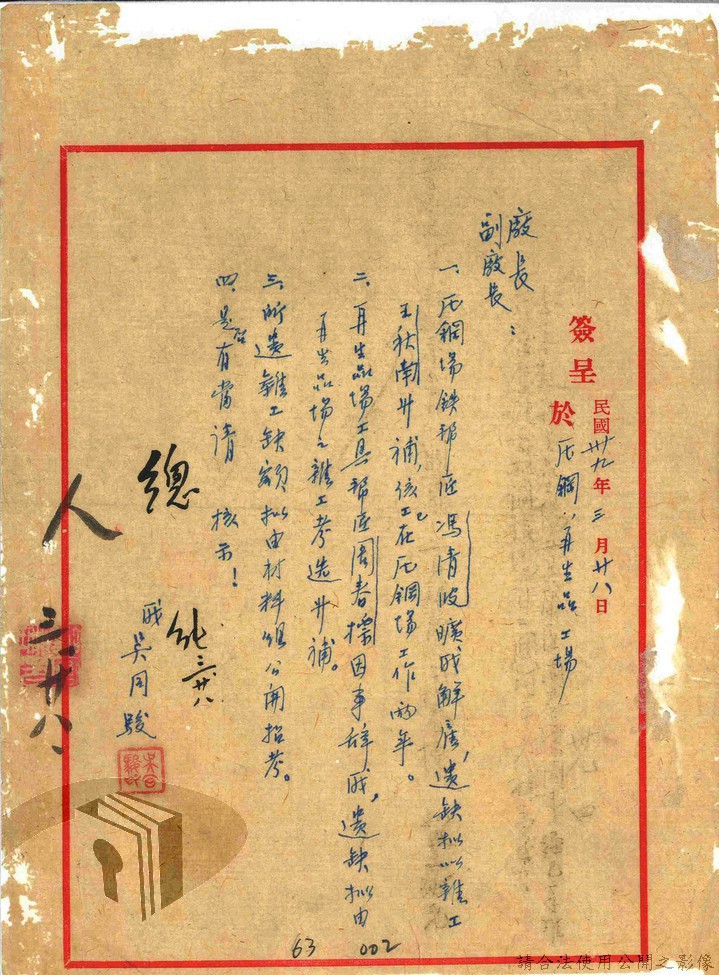 簽呈
民國卅九年三月廿八日
於 压鋼、再生品工場
廠長
副廠長：
一、压鋼場鉄幇匠馮清波曠職解雇，遺缺拟以雜工
王秋南升補，該工已在压鋼場工作兩年。
二、再生品場工具幇匠周春標因事辞職，遺缺拟由
再生品場之雜工考选升補。
三、所遺雜工缺額拟由材料組公開招考。
四、是否有當請 核示！
職吳同駿
總
人
三、廿八、
三廿八
63 002
請合法使用公開之影像